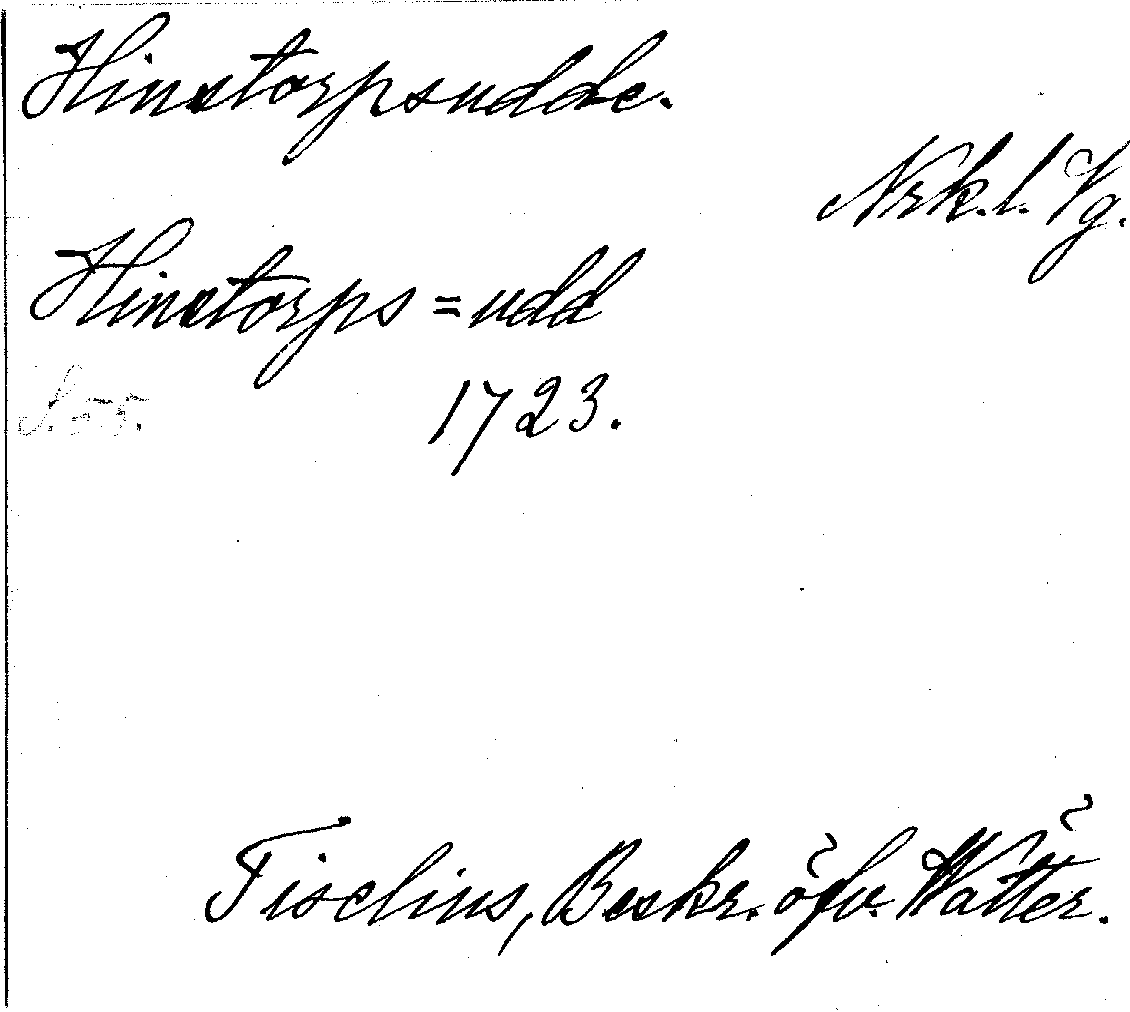 Hinstorpsudde.
Nrk. l. Vg.
Hinstorps=udd
S. 55. 1723.
Tiselius, Beskr. öfv. Wätter.